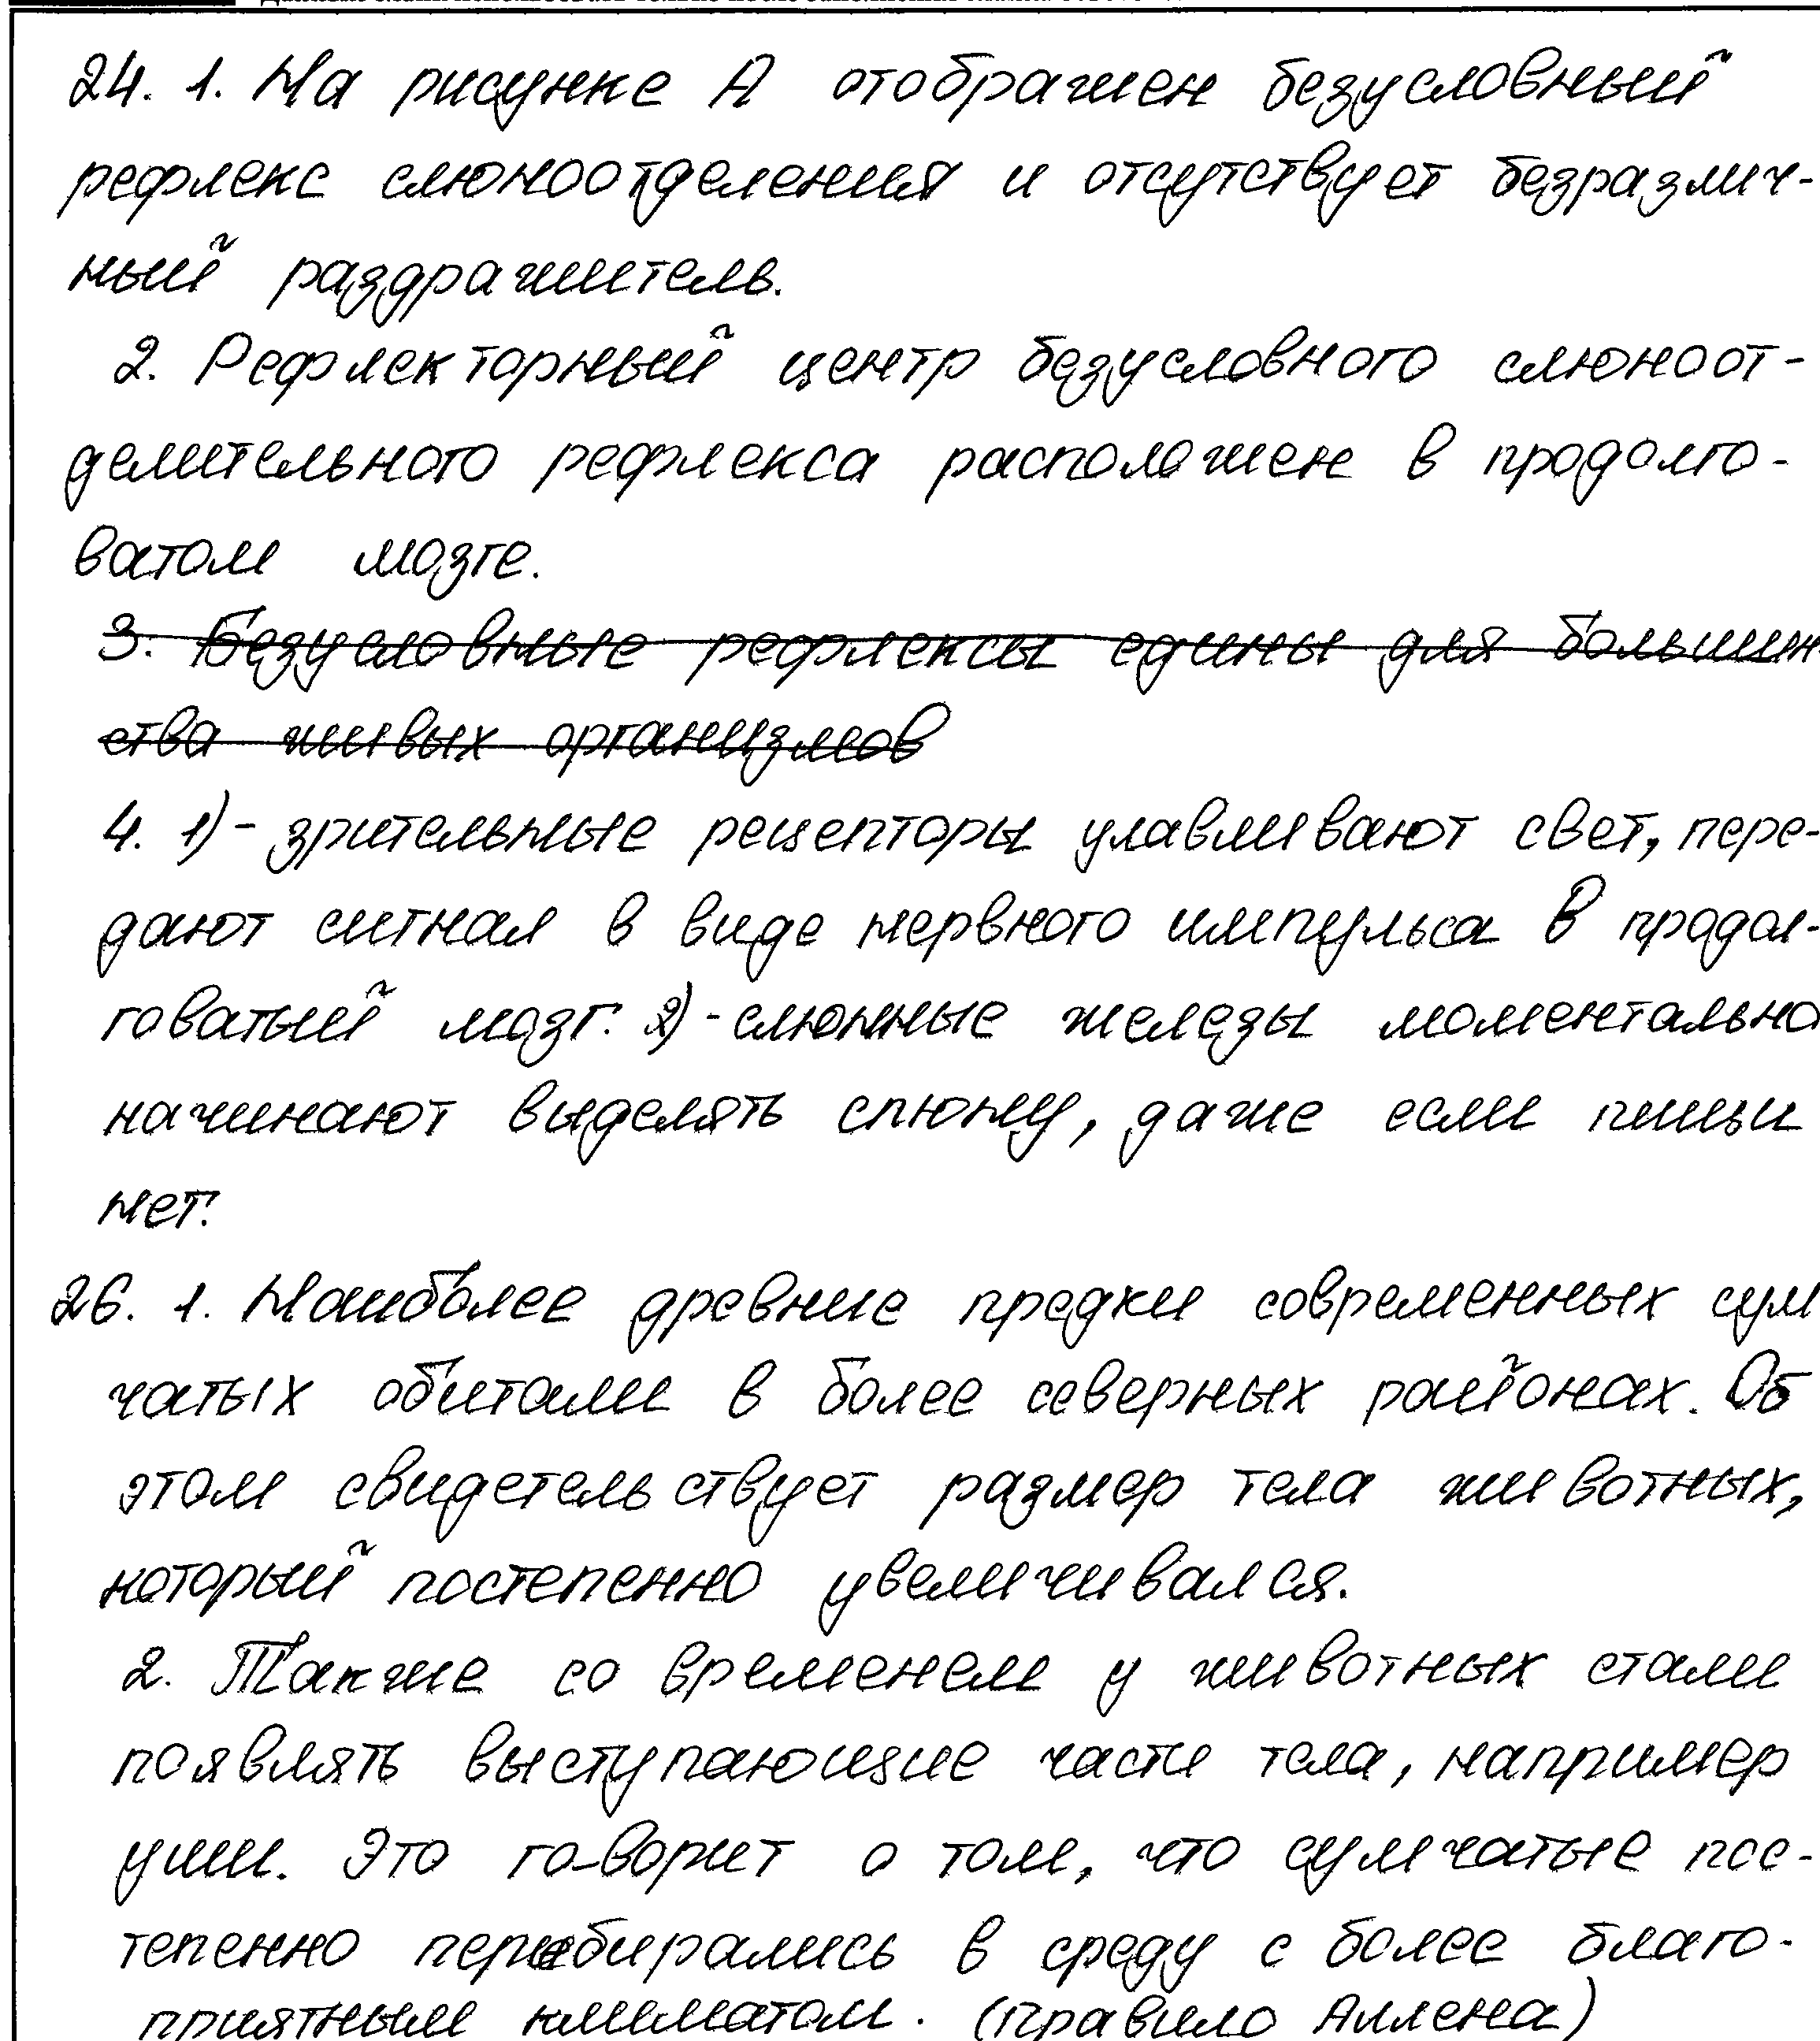 24. 1. На рисунке А отображен безусловный
рефлекс слюноотделения и отсутствует безразлич-
ный раздражитель.
2. Рефлекторный центр безусловного слюноот-
делительного рефлекса расположен в продолго-
ватом мозге.
3. Безусловные рефлексы едины для большин
ства живых организмов
4. 1) - зрительные рецепторы улавливают свет, пере-
дают сигнал в виде нервного импульса в продол-
говатый мозг. 2) - слюнные железы моментально
начинают выделять слюну, даже если пищи
нет.
26. 1. Наиболее древние предки современных сум
чатых обитали в более северных районах. Об
этом свидетельствует размер тела животных,
который постепенно увеличивался.
2. Также со временем у животных стали
появлять выступающие части тела, например
уши. Это го-ворит о том, что сумчатые пос-
тепенно перебирались в среду с более благо-
приятным климатом. (Правило Аллена)